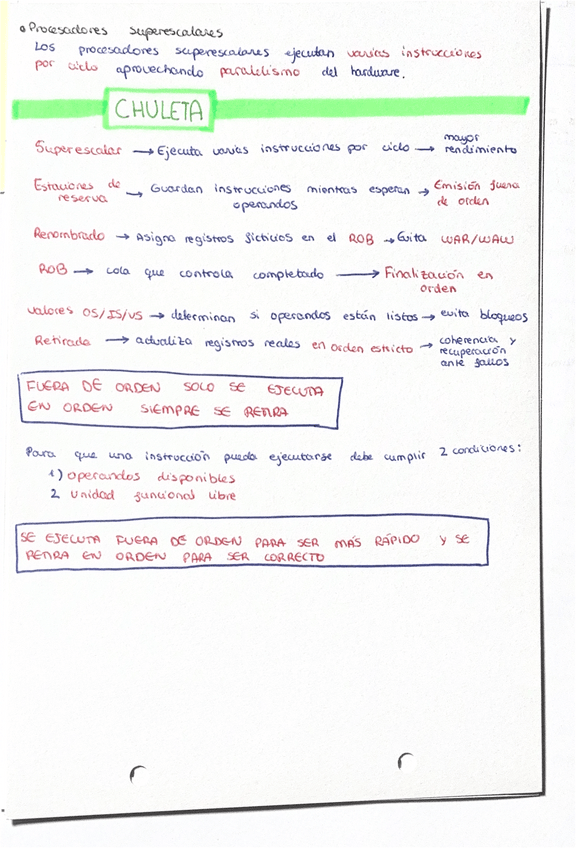 Procesadores superescalares
Los procesadores superescalares ejecutan varias instrucciones
por ciclo aprovechando paralelismo del hardware.
CHULETA
Superescalar → Ejecuta varias instrucciones por ciclo → mayor rendimiento
Estaciones de reserva → Guardan instrucciones mientras esperan operandos → Emisión fuera de orden
Renombrado → Asigna registros ficticios en el ROB → Evita WAR/WAW
ROB → cola que controla completado → Finalización en orden
Valores OS/IS/VS → determinan si operandos están listos → evita bloqueos
Retirada → actualiza registros reales en orden estricto → coherencia y recuperación ante fallos
FUERA DE ORDEN SOLO SE EJECUTA
EN ORDEN SIEMPRE SE RETIRA
Para que una instrucción pueda ejecutarse debe cumplir 2 condiciones:
1) operandos disponibles
2 unidad funcional libre
SE EJECUTA FUERA DE ORDEN PARA SER MÁS RÁPIDO Y SE
RETIRA EN ORDEN PARA SER CORRECTO